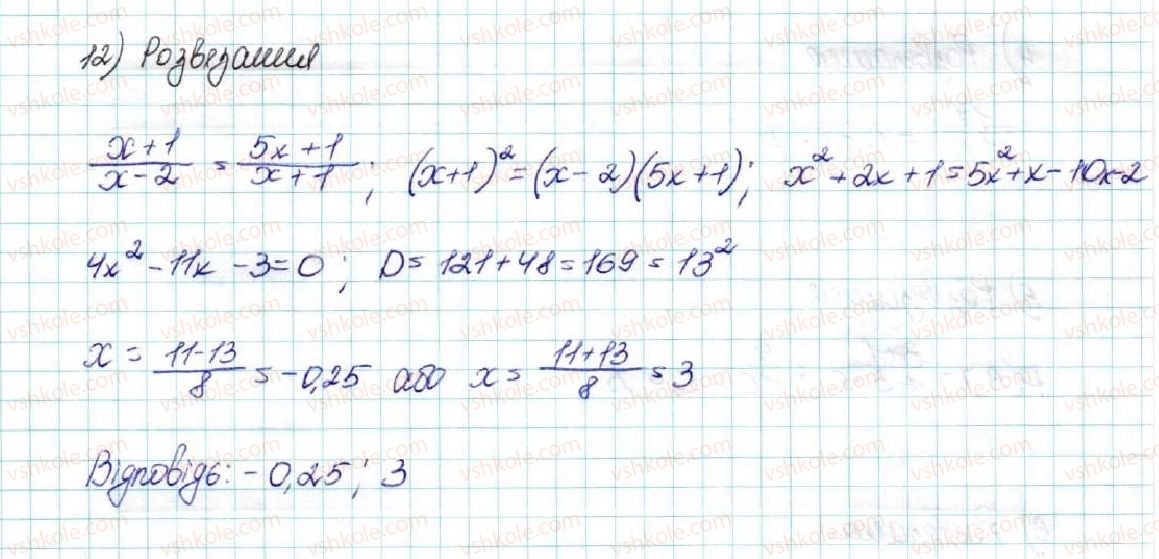 12) Розвезання
(x+1)/(x-2) = (5x+1)/(x+1); (x+1)² = (x-2)(5x+1); x²+2x+1=5x²+x-10x-2
4x²-11x-3=0; D= 121+48=169=13²
x = (11-13)/8 = -0,25 або x = (11+13)/8 = 3
Відповідь: -0,25; 3
vshkole.com